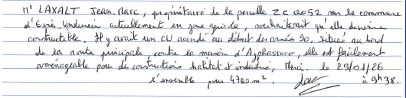 Mr LAXALT Jean.Marc, propriétaire de la parcelle ZC 0052 sur la commune
d'Espès Undurein actuellement en zone agricole, souhaiterait qu'elle devienne
constructible. Il y avait un CU accordé au début des années 90. Située au bord
de la route principale, contre la maison d'Apphessare, elle est facilement
aménageable pour des constructions habitat et industries, Merci. le 29/01/26
l'ensemble pour 4780 m². à 9h38.